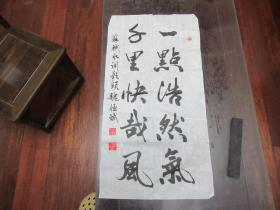 一點浩然氣
千里快哉風
蘇軾水調歌頭